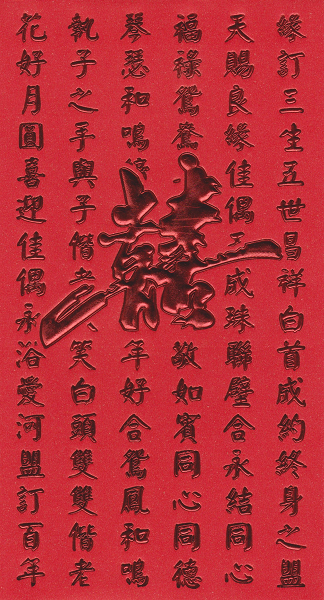 緣訂三生五世昌祥白首成約終身之盟
天賜良緣佳偶天成珠聯璧合永結同心
福祿鴛鴦敬如賓同心同德
琴瑟和鳴年好合鴛鳳和鳴
執子之手與子偕老笑白頭雙雙偕老
花好月圓喜迎佳偶永浴愛河盟訂百年